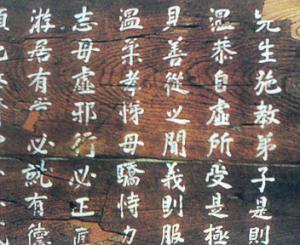 先生施教弟子是則
温恭自虛所受是極
見善從之聞義則服
温柔孝悌毋驕恃力
志毋虛邪行必正直
游居有常必就有德